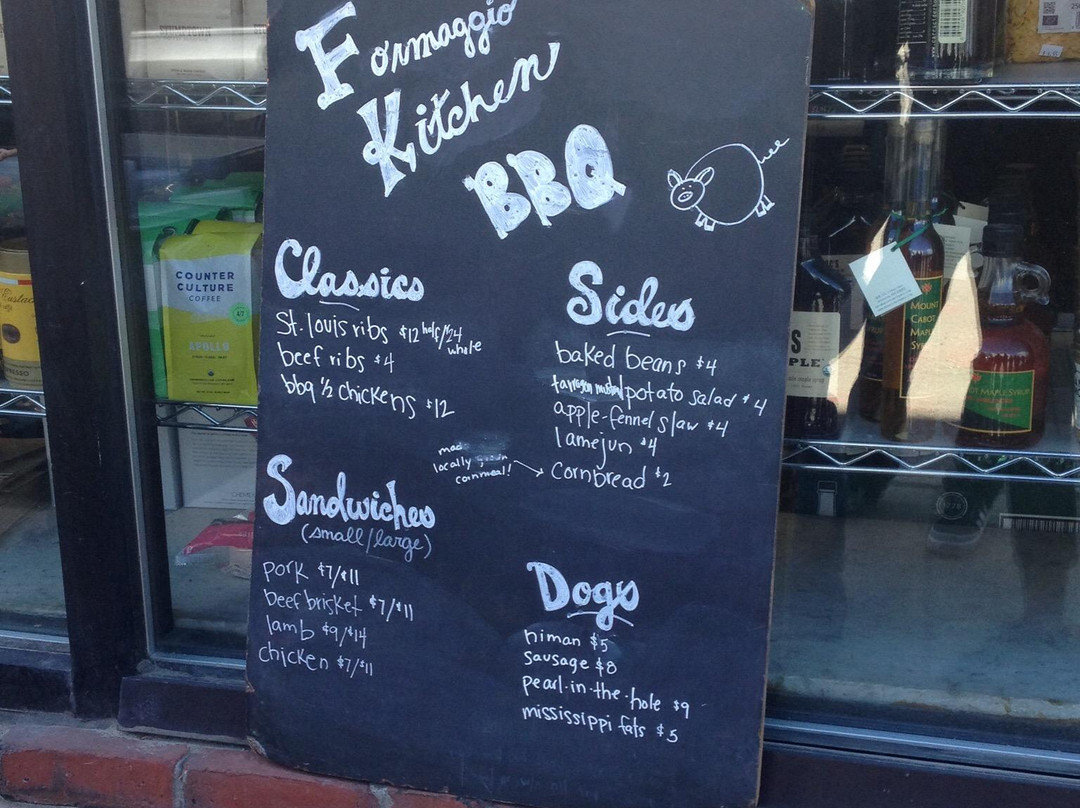 Formaggio
Kitchen
BBQ
Classics
St. louis ribs $12 half/24 whole
beef ribs $4
bbq ½ chickens $12
Sandwiches
(small/large)
pork $7/$11
beef brisket $7/$11
lamb $9/$14
chicken $7/$11
Sides
baked beans $4
tarragon mustard potato salad $4
apple-fennel slaw $4
lamejun $4
cornbread $2
locally
cornmeal!
Dogs
niman $5
sausage $8
pearl-in-the-hole $9
mississippi fats $5
COUNTER
CULTURE
COFFEE
APOLLO
MOUNT
CABOT
MAPLE
MAPLE SYRUP